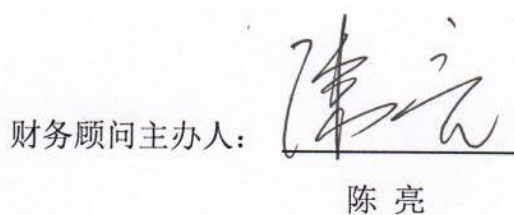 财务顾问主办人：陈亮
陈 亮